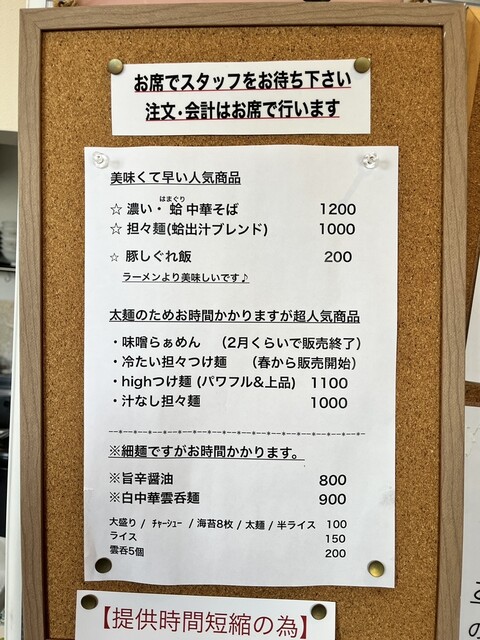 お席でスタッフをお待ち下さい
注文・会計はお席で行います
美味くて早い人気商品
はまぐり
☆ 濃い・蛤 中華そば 1200
☆ 担々麺(蛤出汁ブレンド) 1000
☆ 豚しぐれ飯 200
ラーメンより美味しいです♪
太麺のためお時間かかりますが超人気商品
・味噌らぁめん (2月くらいで販売終了)
・冷たい担々つけ麺 (春から販売開始)
・highつけ麺 (パワフル&上品) 1100
・汁なし担々麺 1000
※細麺ですがお時間かかります。
※旨辛醤油 800
※白中華雲呑麺 900
大盛り / チャーシュー / 海苔8枚 / 太麺 / 半ライス 100
ライス 150
雲呑5個 200
【提供時間短縮の為】